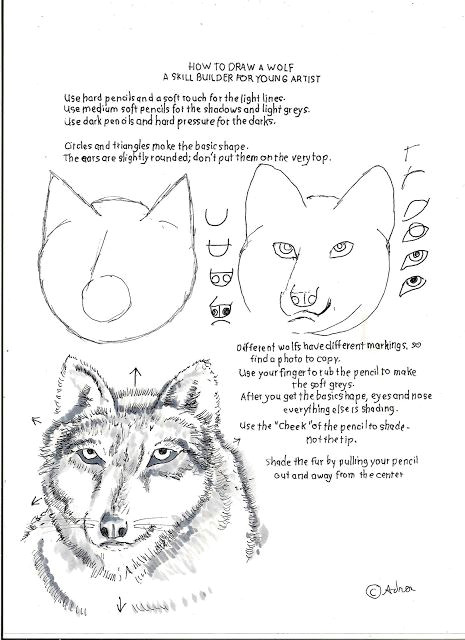 HOW TO DRAW A WOLF
A SKILL BUILDER FOR YOUNG ARTIST
Use hard pencils and a soft touch for the light lines.
Use medium soft pencils for the shadows and light greys.
Use dark pencils and hard pressure for the darks.
Circles and triangles make the basic shape.
The ears are slightly rounded; don't put them on the very top.
Different wolfs have different markings, so
find a photo to copy.
Use your finger to rub the pencil to make
the soft greys.
After you get the basic shape, eyes and nose
everything else is shading.
Use the "Cheek" of the pencil to shade-
not the tip.
Shade the fur by pulling your pencil
out and away from the center
©